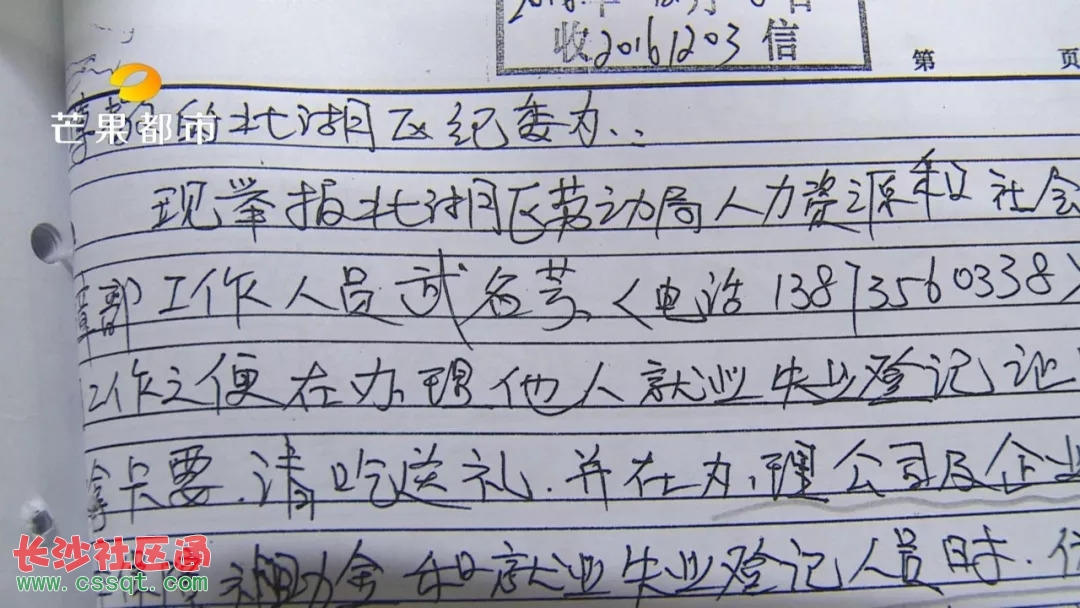 收20161203信
第 页
芒果都市
给北湖区纪委办:
现举报北湖区劳动局人力资源和社会
部工作人员武名芳(电话13873560338)
工作之便在办理他人就业失业登记证
卡要.请吃送礼.并在办理公司及企业
补助金和就业失业登记人员时.
长沙社区通
www.cssqt.com